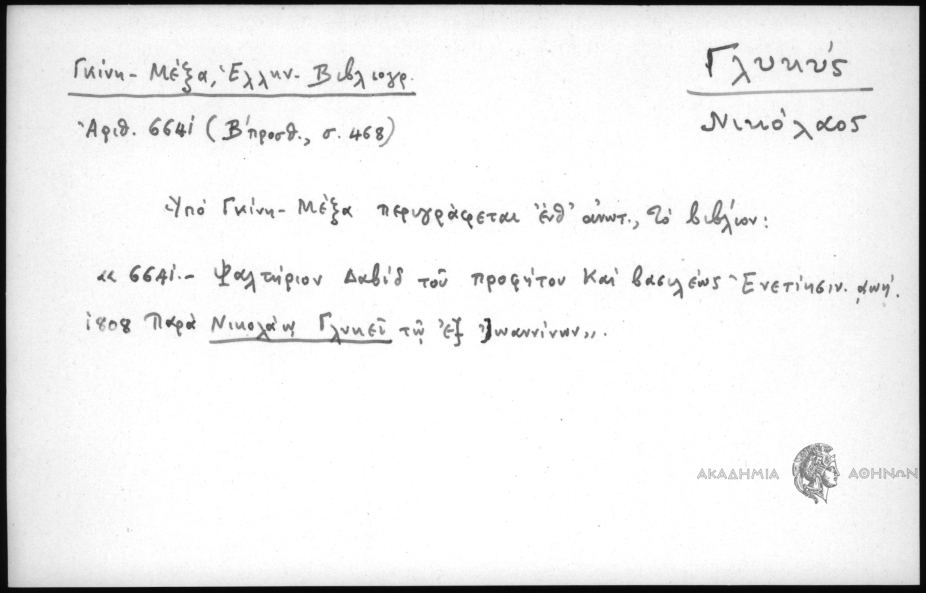 Γλυκύς
Γκίνη - Μέξα, Ἑλλην. Βιβλιογρ.
Νικόλαος
Ἀριθ. 664ί (Β΄προσθ., σ. 468)
Ὑπό Γκίνη - Μέξα περιγράφεται ἔνθ' ἀνωτ., τό βιβλίον:
« 664ί.- Ψαλτήριον Δαβίδ τοῦ προφήτου καί βασιλέως Ἐνετίησιν. αωή.
1808 Παρά Νικολάῳ Γλυκεῖ τῷ ἐξ Ἰωαννίνων».
ΑΚΑΔΗΜΙΑ ΑΘΗΝΩΝ